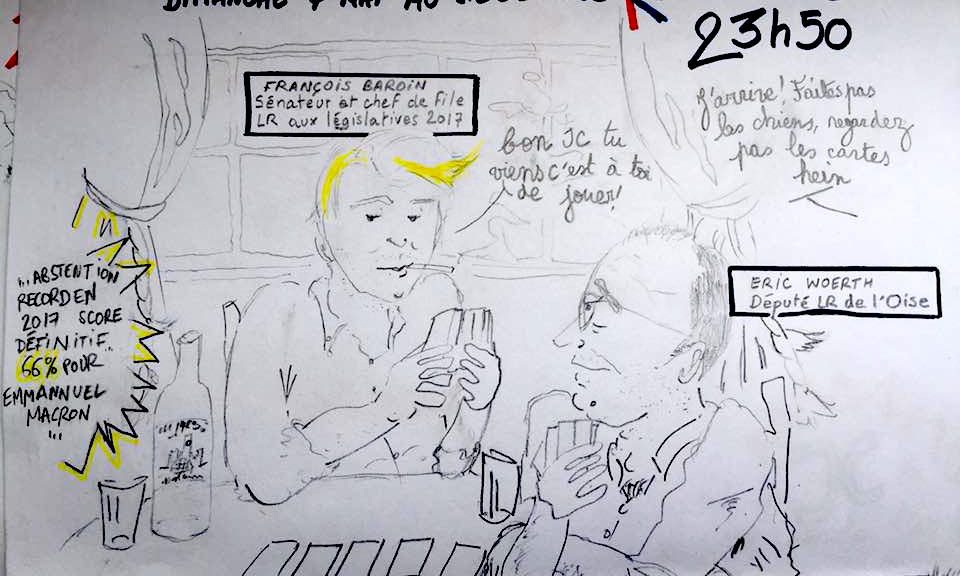 DIMANCHE 7 MAI AU
23h50
FRANÇOIS BAROIN
Sénateur et chef de file
LR aux législatives 2017
Bon JC tu
viens c'est à toi
de jouer!
J'arrive! Faites pas
les chiens, regardez
pas les cartes
hein
ERIC WOERTH
Député LR de l'Oise
...ABSTENTION
RECORD EN
2017 SCORE
DÉFINITIF..
66% POUR
EMMANNUEL
MACRON
...